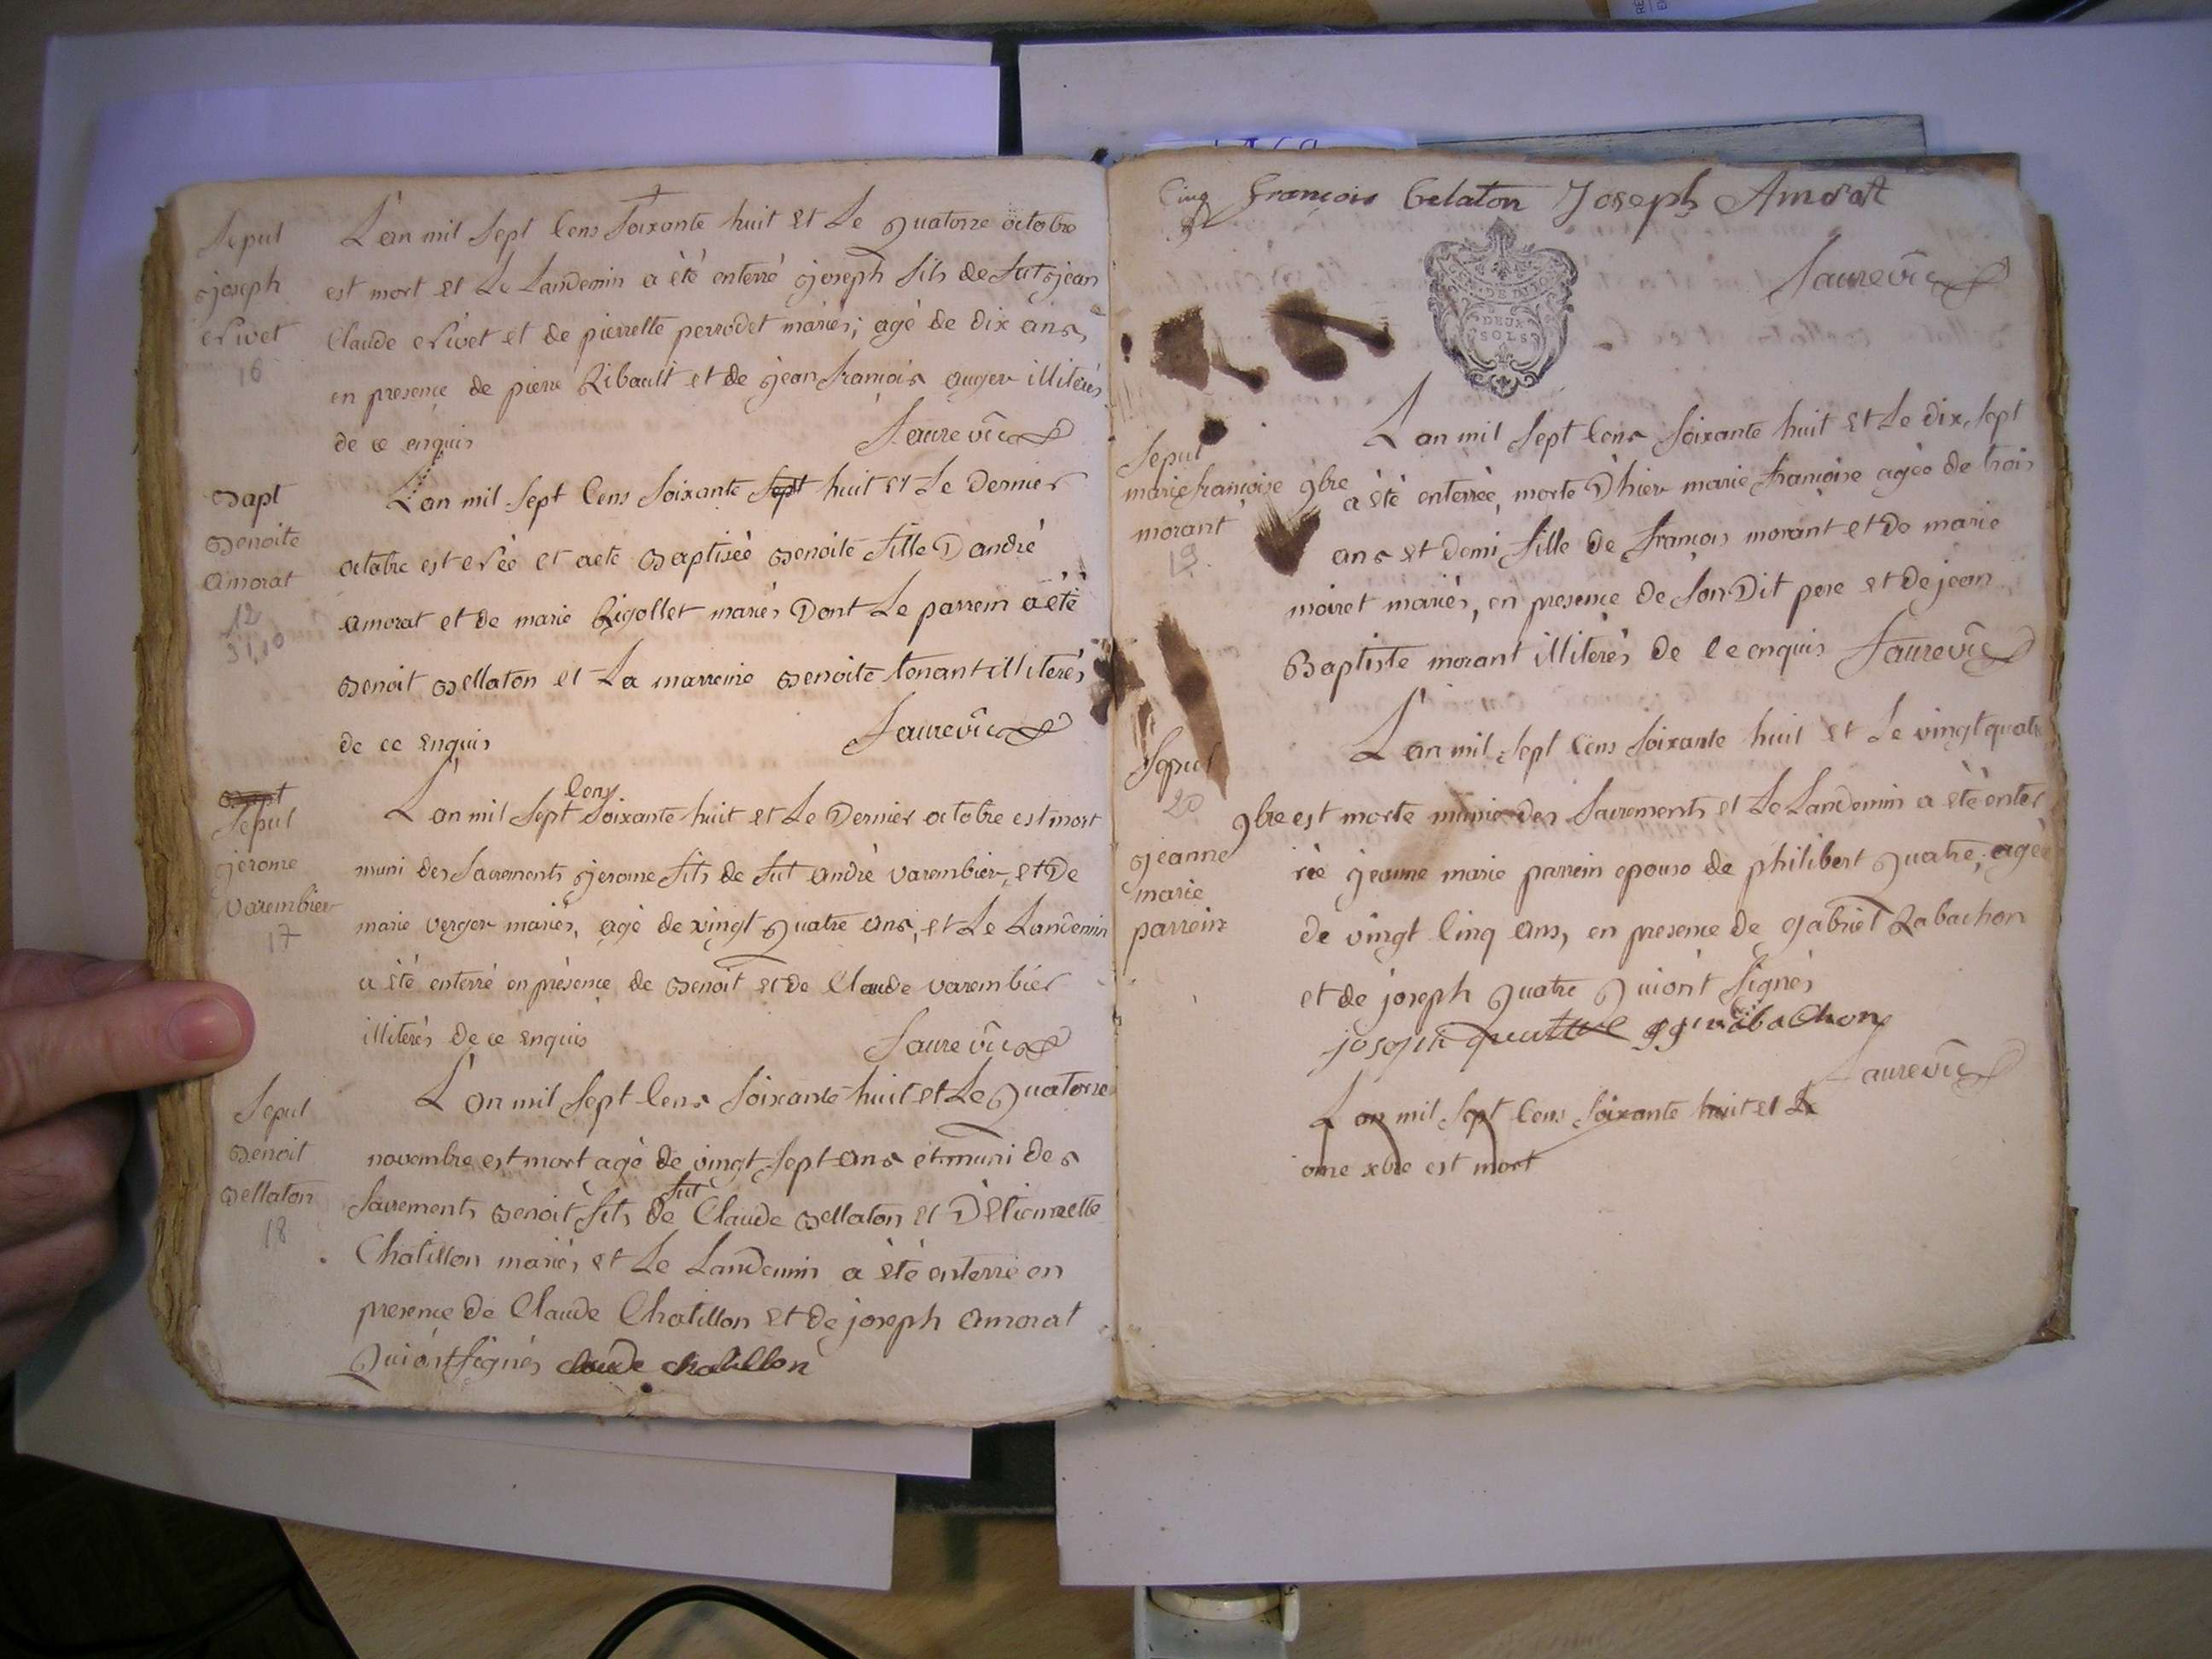 Sepul
joseph
nivet
16
L'an mil sept cens soixante huit et le quatorze octobre
est mort et le landemin a été enterré joseph fils de fut jean
claude nivet et de pierrette perrodet mariés; agé de dix ans,
en presence de pierre Ribault et de jean françois auger illiterés
de ce enquis Faure vic
Bapt
Benoite
amorat
12
31,10
L'an mil sept cens soixante sept huit et le dernier
octobre est née et a eté Baptiseé Benoite fille D'andré
amorat et de marie Rigollet mariés Dont le parrein a été
Benoit Bellaton et La marreine Benoite tenant illiterés
de ce enquis Faure vic
Bapt
Sepul
jerome
varembier
17
L'an mil sept cens soixante huit et le Dernier octobre est mort
muni des sacrements jerome fils de fut andré varembier, et De
marie verger mariés, agé de vingt quatre ans, et le landemin
a été enterré en présence de Benoit et de Claude varembier
illiterés de ce enquis Faure vic
Sepul
Benoit
Bellaton
18
L'an mil sept cens soixante huit et le quatorze
novembre est mort agé de vingt sept ans et muni des
sacrements Benoit fils de fut Claude Bellaton et D'Etiennette
Chatillon mariés, et le landemin a été enterré en
presence de Claude Chatillon et de joseph amorat
qui ont signés claude chatillon
Cinq françois belaton Joseph Amorat
Faure vic
DEUX
SOLS
Sepul
marie françoise
morant
19.
L'an mil sept cens soixante huit et le dix sept
9bre a été enterrée, morte D'hier marie françoise agée de trois
ans et demi fille de françois morant et de marie
moiret mariés, en presence de son Dit pere et de jean
Baptiste morant illiterés de ce enquis Faure vic
Sepul
20
jeanne
marie
parrein
L'an mil sept cens soixante huit et le vingt quatre
9bre est morte munie des sacrements et le landemin a été enter
rée jeanne marie parrein epouse de philibert quatre, agée
de vingt cinq ans, en presence de gabriel Rabachon
et de joseph quatre qui ont signés
joseph quatre rabachon
Faure vic
L'an mil sept cens soixante huit et le
onze xbre est mort